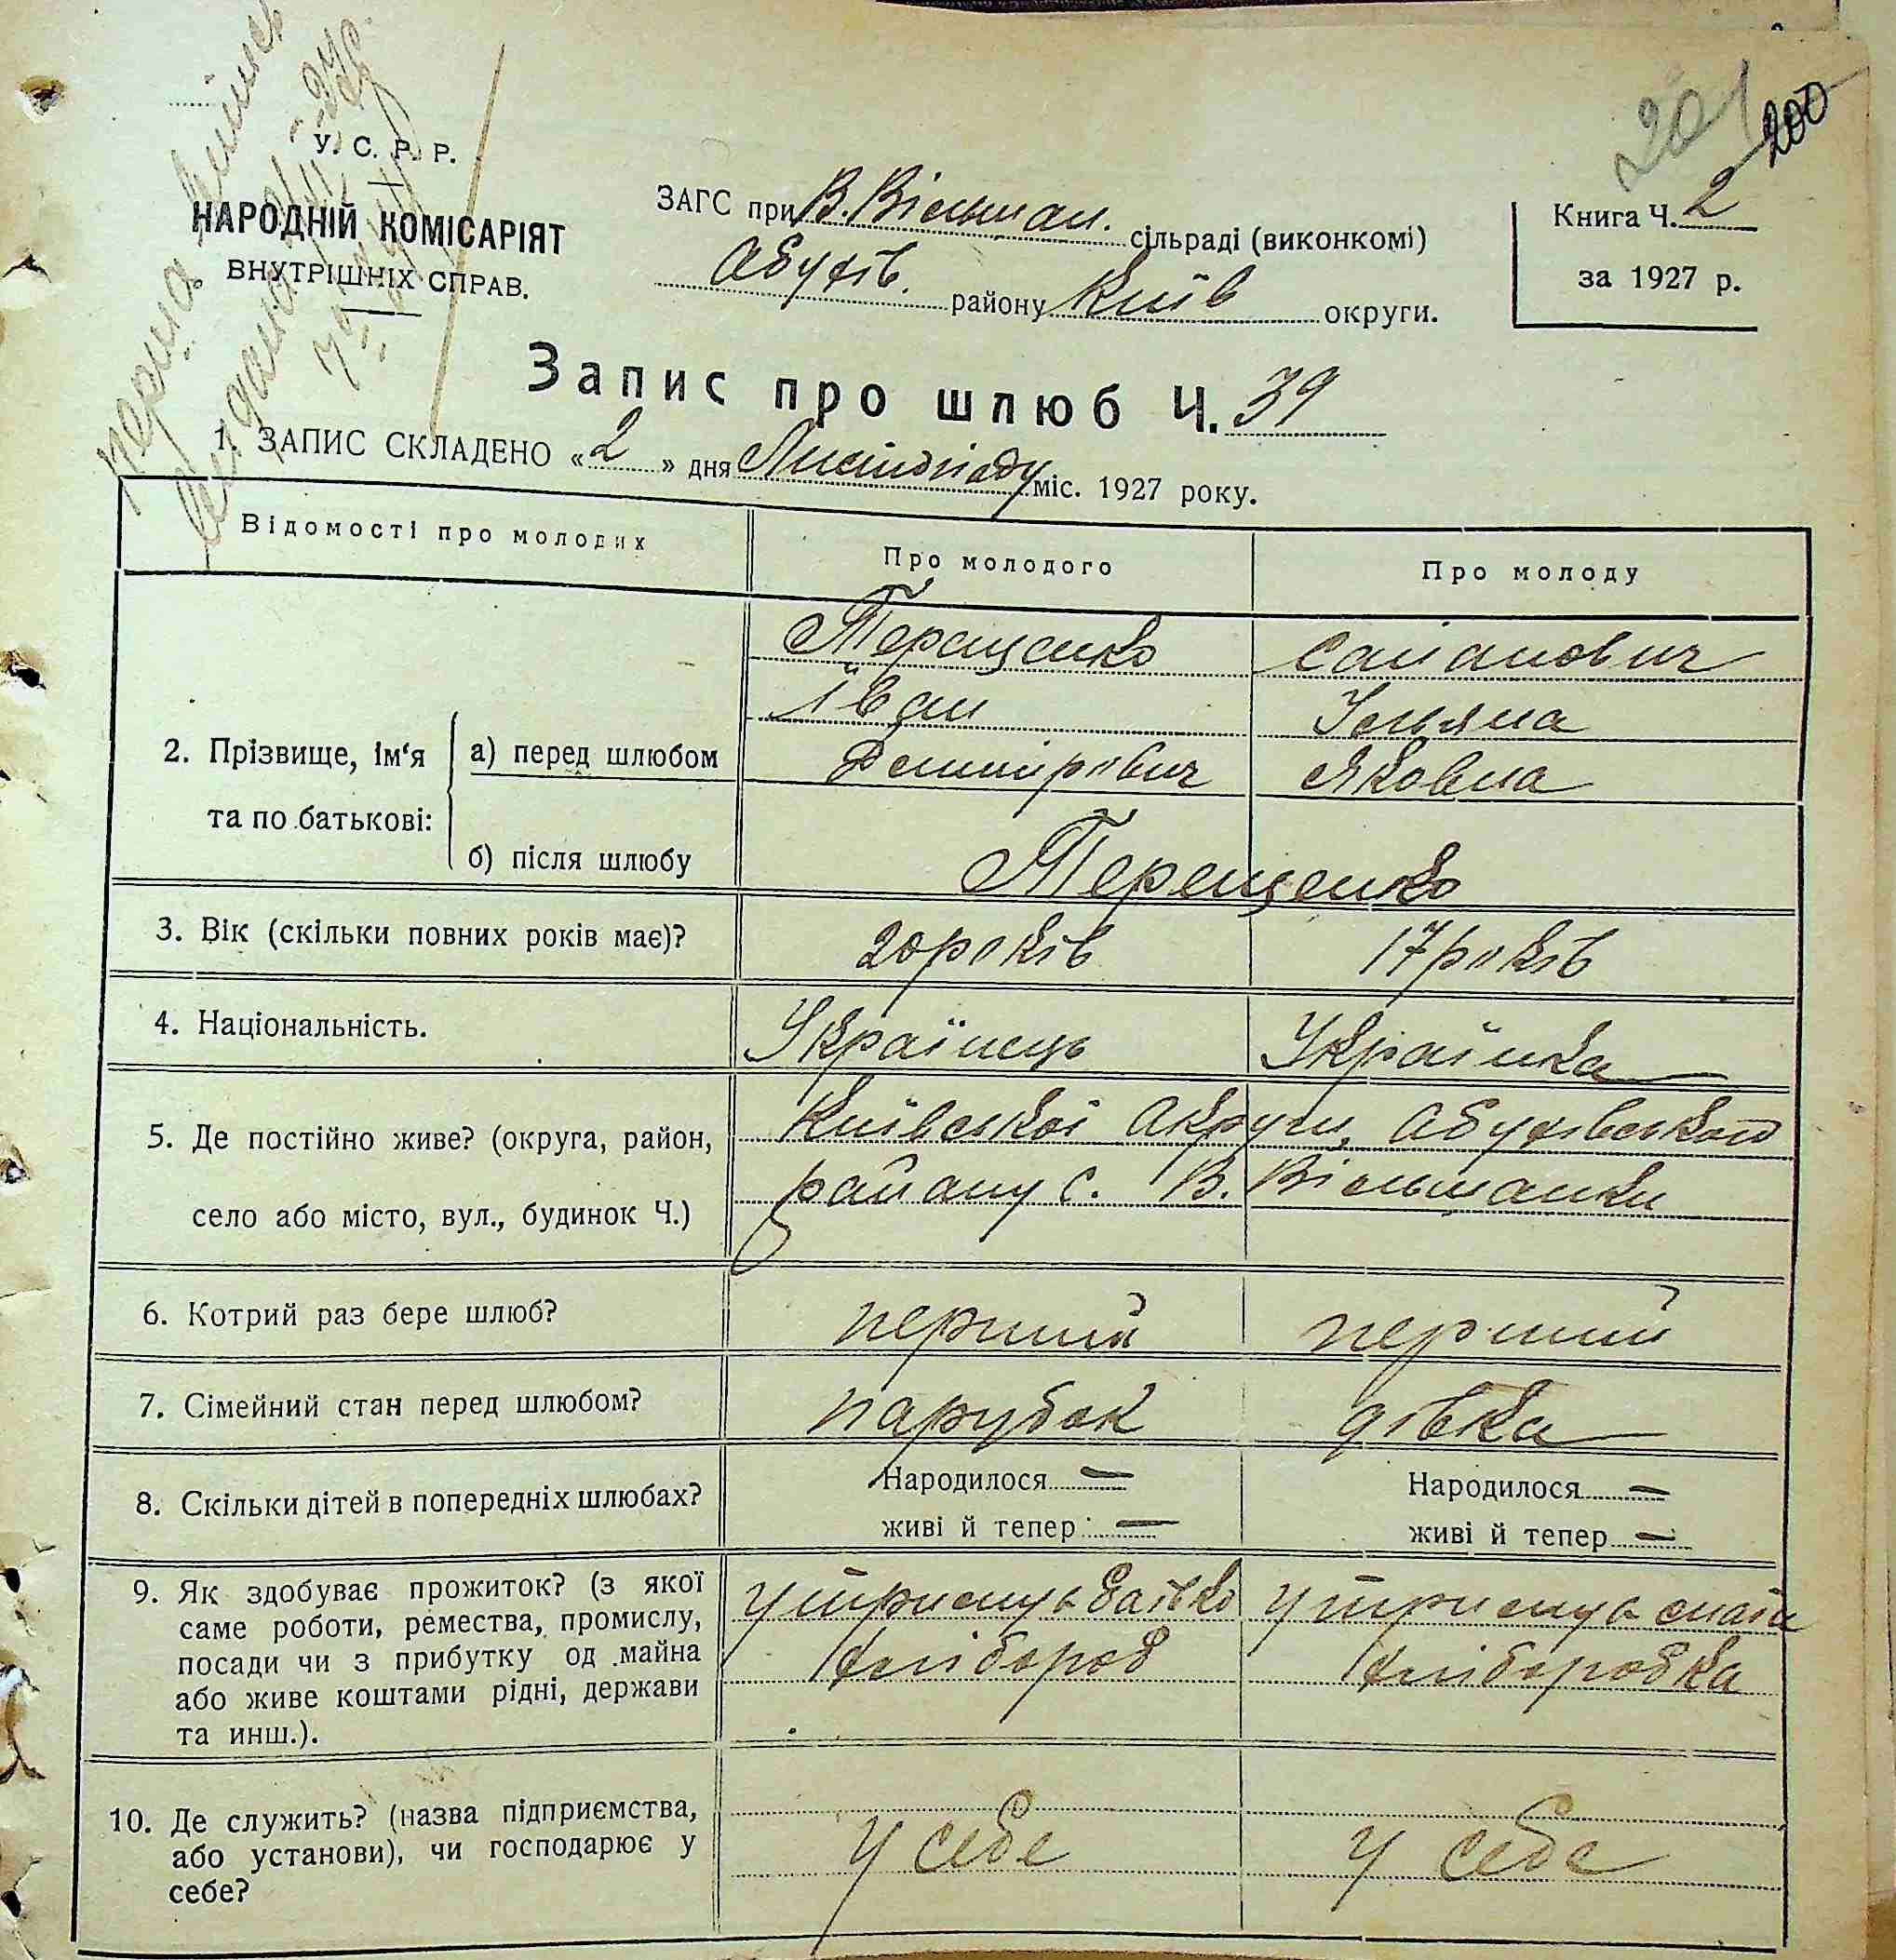 201
200
У. С. Р. Р.
НАРОДНІЙ КОМІСАРІЯТ
ВНУТРІШНІХ СПРАВ.
ЗАГС при В. Вільшан. сільраді (виконкомі)
Абухів. району Київ округи.
Книга Ч. 2
за 1927 р.
Запис про шлюб Ч. 39
1. ЗАПИС СКЛАДЕНО «2» дня Листопаду міс. 1927 року.
Відомості про молодих
Про молодого
Про молоду
2. Прізвище, ім‘я та по батькові:
а) перед шлюбом
Терещенко
Іван
Демитрович
Саианович
Ульяна
Яковна
б) після шлюбу
Терещенко
3. Вік (скільки повних років має)?
20 років
17 років
4. Національність.
Українець
Українка
5. Де постійно живе? (округа, район,
село або місто, вул., будинок Ч.)
Київської Акруги, Абухівського
району с. В. Вільшанки
6. Котрий раз бере шлюб?
перший
перший
7. Сімейний стан перед шлюбом?
парубок
дівка
8. Скільки дітей в попередніх шлюбах?
Народилося —
живі й тепер —
Народилося —
живі й тепер —
9. Як здобуває прожиток? (з якої
саме роботи, ремества, промислу,
посади чи з прибутку од майна
або живе коштами рідні, держави
та инш.).
утримує батько
хлібороб
утримує мати
хлібороб ка
10. Де служить? (назва підприємства,
або установи), чи господарює у
себе?
у себе
у себе